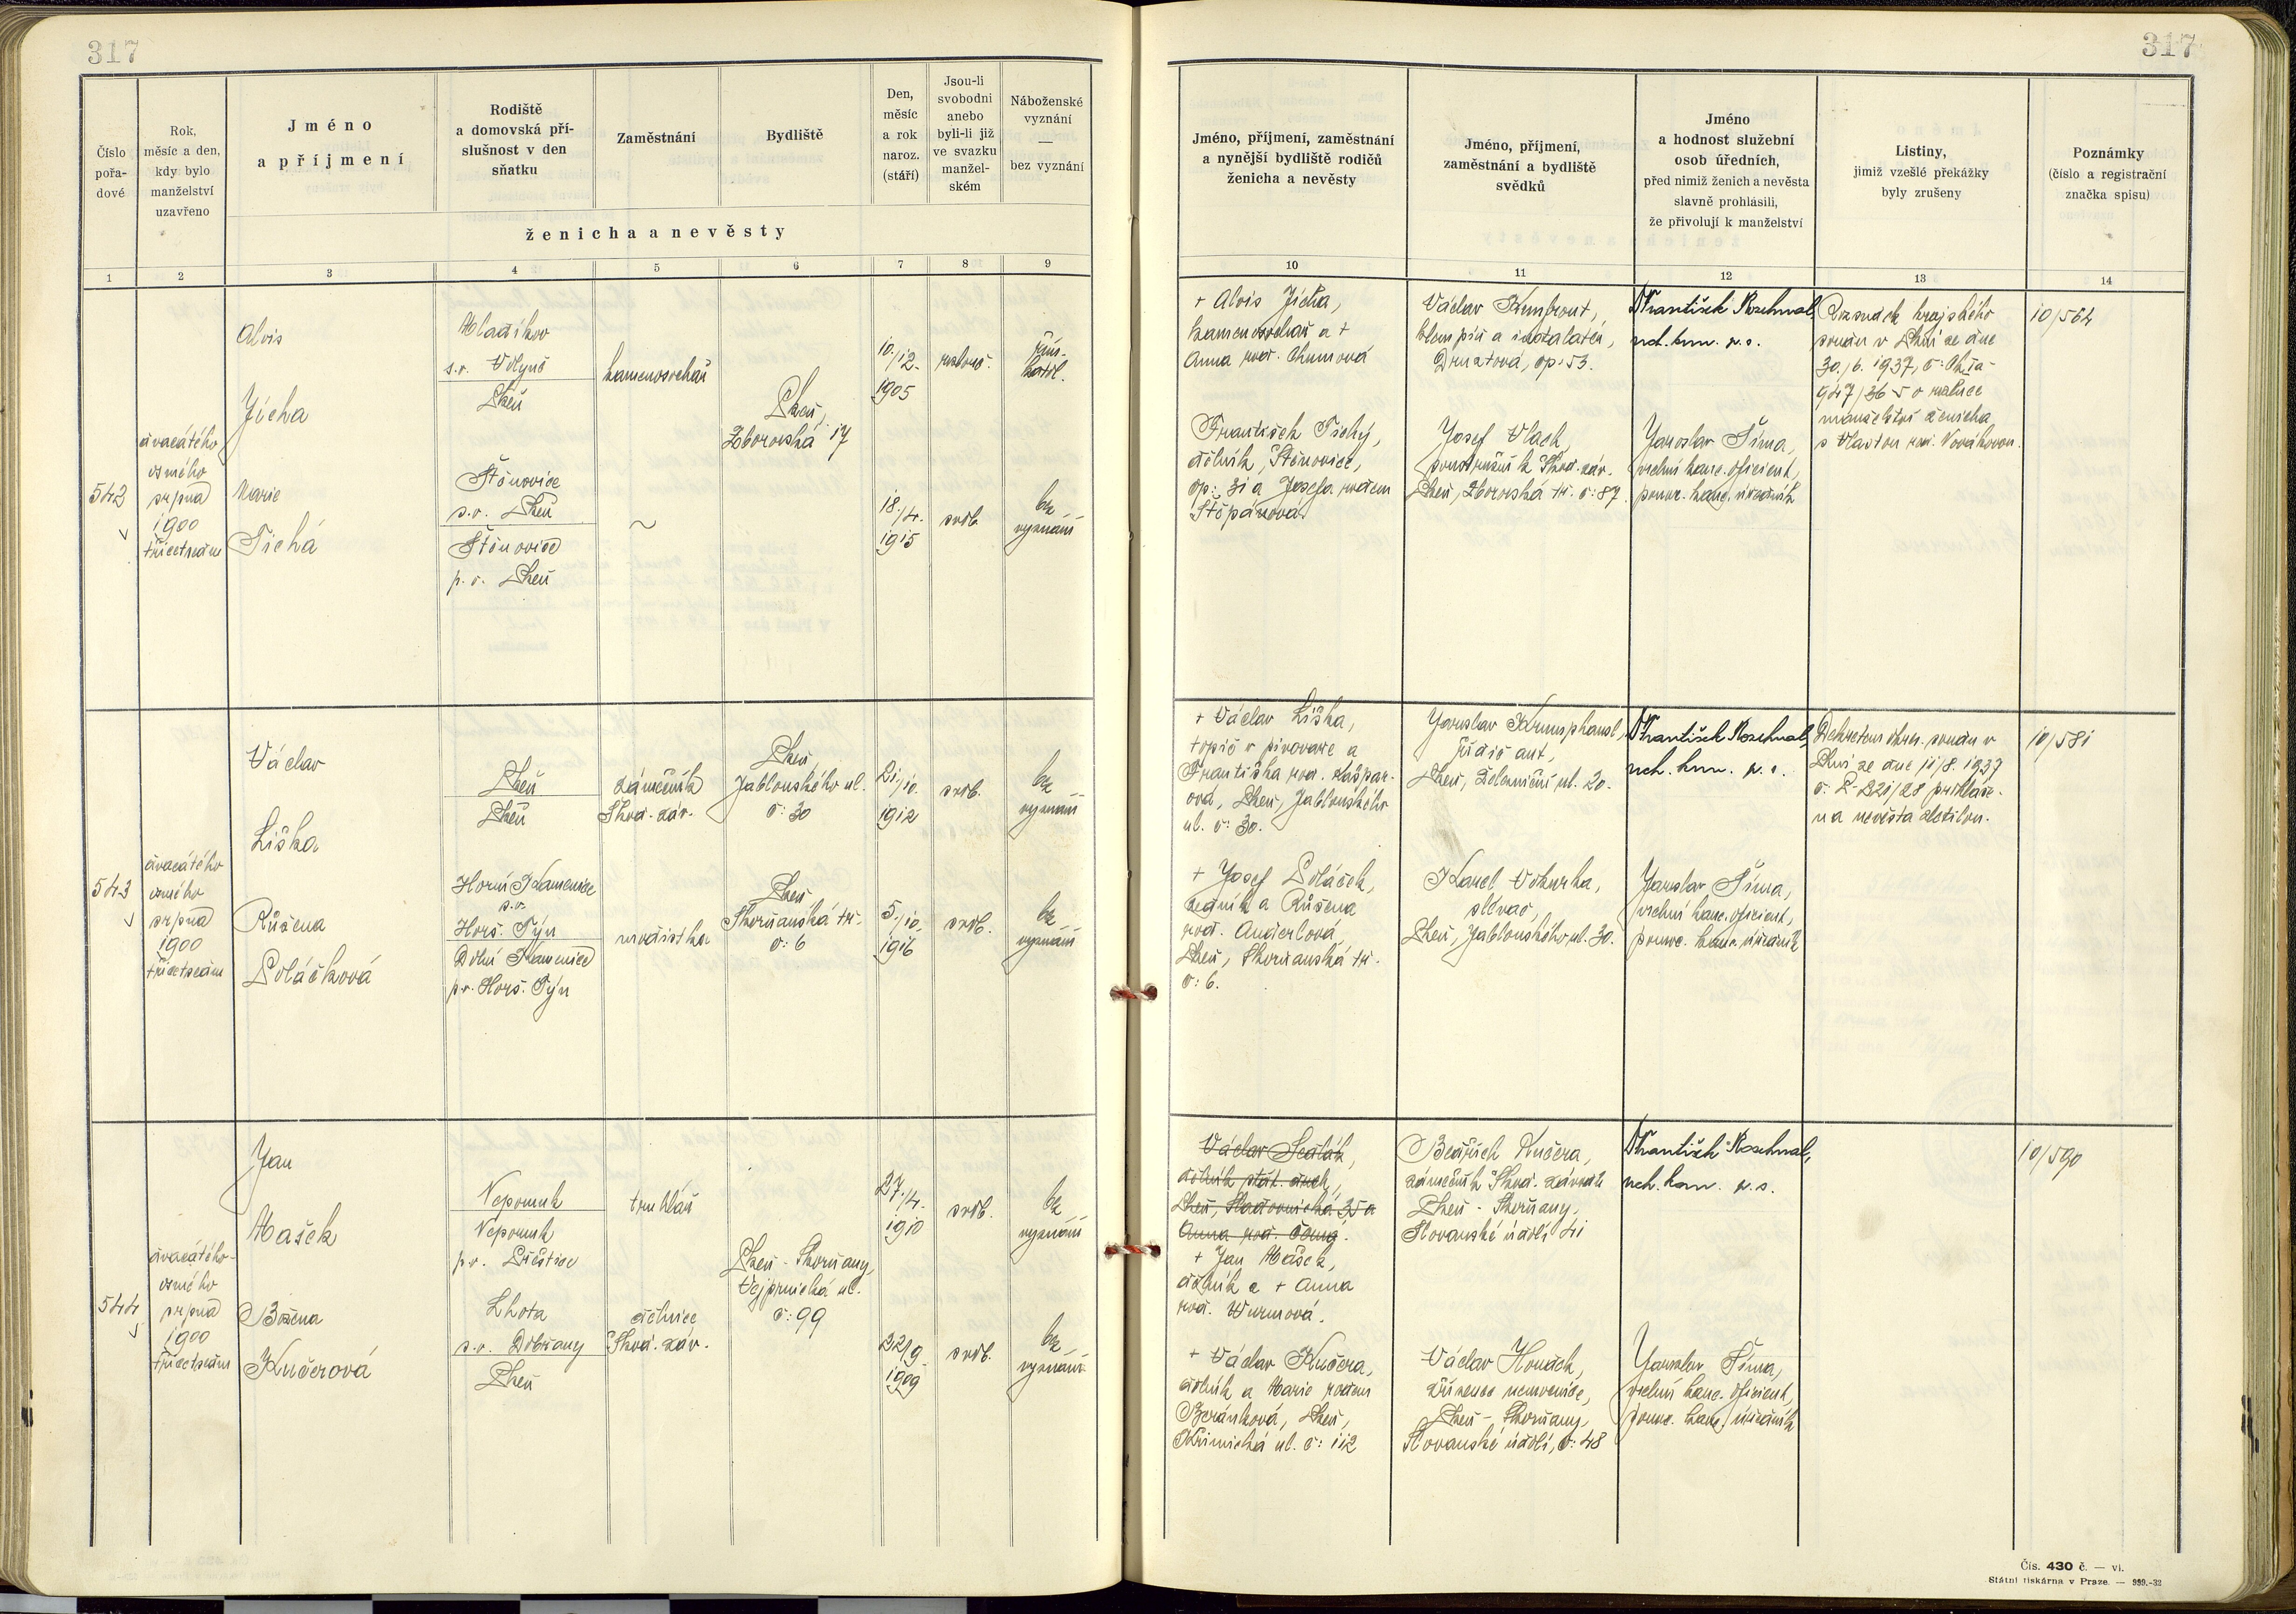 317
317
Číslo
pořa-
dové
Rok,
měsíc a den,
kdy bylo
manželství
uzavřeno
Jméno
a příjmení
Rodiště
a domovská pří-
slušnost v den
sňatku
Zaměstnání
Bydliště
Den,
měsíc
a rok
naroz.
(stáří)
Jsou-li
svobodni
anebo
byli-li již
ve svazku
manžel-
ském
Náboženské
vyznání
—
bez vyznání
ženicha a nevěsty
1 2 3 4 5 6 7 8 9
Jméno, příjmení, zaměstnání
a nynější bydliště rodičů
ženicha a nevěsty
Jméno, příjmení,
zaměstnání a bydliště
svědků
Jméno
a hodnost služební
osob úředních,
před nimiž ženich a nevěsta
slavně prohlásili,
že přivolují k manželství
Listiny,
jimiž vzešlé překážky
byly zrušeny
Poznámky
(číslo a registrační
značka spisu)
10 11 12 13 14
542
dvacátého
osmého
srpna
1900
třicetsedm
Alois
Jícha
Marie
Tichá
Hladíkov
s.o. Volyně
Plzeň
Štěnovice
s.o. Plzeň
Štěnovice
p.o. Plzeň
kamenosochař
~
Plzeň,
Zborovská 17
10./12.
1905
18./4.
1915
rozlouč.
svob.
řím.
katol.
bez
vyznání
+ Alois Jícha,
kamenosochař a +
Anna roz. Chumová
František Tichý,
dělník, Štěnovice,
čp: 31 a Josefa rozem
Štěpánova.
Václav
klempíř a instalatér,
čp: 53.
Josef Vlach,
soustružník Škod. záv.
Plzeň, Zborovská tř. č: 87.
František
uch. kom. r. s.
Jaroslav Šíma,
vrchní kanc. oficient,
pover. kanc. úředník
Rozsudek krajského
soudu v Plzni ze dne
30./6. 1937, č:
947/36-5 o rozluce
manželství ženicha
s Vlastou roz. Novákovou.
10/564
543
dvacátého
osmého
srpna
1900
třicetsedm
Václav
Liška
Růžena
Poláčková
Plzeň
Plzeň
Horní Kamenice
s.o.
Hors. Týn
Dolní Kamenice
p.o. Hors. Týn
zámečník
Škod. záv.
modistka
Plzeň,
Jablonského ul.
č: 30
Plzeň
Skvrňanská tř.
č: 6
21./10.
1912
5./10.
1916
svob.
svob.
bez
vyznání
bez
vyznání
+ Václav Liška,
topič v pivovaře a
Františka roz. Kašpar-
ová, Plzeň, Jablonského
ul. č: 30.
+ Josef Poláček,
zedník a Růžena
roz. Anderlová,
Plzeň, Skvrňanská tř.
č: 6.
Jaroslav Krumphanzl,
řidič aut,
Plzeň, Železniční ul. 20.
Karel Vokurka,
slévač,
Plzeň, Jablonského ul. 30.
František
uch. kom. r. s.
Jaroslav Šíma,
vrchní kanc. oficient,
pover. kanc. úředník
Dekretem okres. soudu v
Plzni ze dne 11/8. 1937
č: P-221/28 prohláše-
na nevěsta zletilou.
10/581
544
dvacátého-
osmého
srpna
1900
třicetsedm
Jan
Mašek
Božena
Kučerová
Nepomuk
Nepomuk
p.o. Přeštice
Lhota
s.o. Dobřany
Plzeň
truhlář
dělnice
Škod. záv.
Plzeň - Skvrňany,
Vejprnická ul.
č: 99
27./4.
1910
22/9.
1909
svob.
svob.
bez
vyznání
bez
vyznání
Václav Sedlák,
dělník stát. drah,
Plzeň, Sladovnická 35 a
Anna roz. Černá.
+ Jan Mašek,
dělník a + Anna
roz. Wurmová.
+ Václav Kučera,
dělník a Marie rozem
Beránková, Plzeň,
Křimická ul. č: 112
Bedřich Kučera,
zámečník Škod. závodů
Plzeň - Skvrňany,
Slovanské údolí 41
Václav
zřízenec nemocnice,
Plzeň - Skvrňany,
Slovanské údolí, č: 48
František
uch. kom. r. s.
Jaroslav Šíma,
vrchní kanc. oficient,
pover. kanc. úředník
10/590
Čís. 430 č. — vl.
Státní tiskárna v Praze. — 999.-32